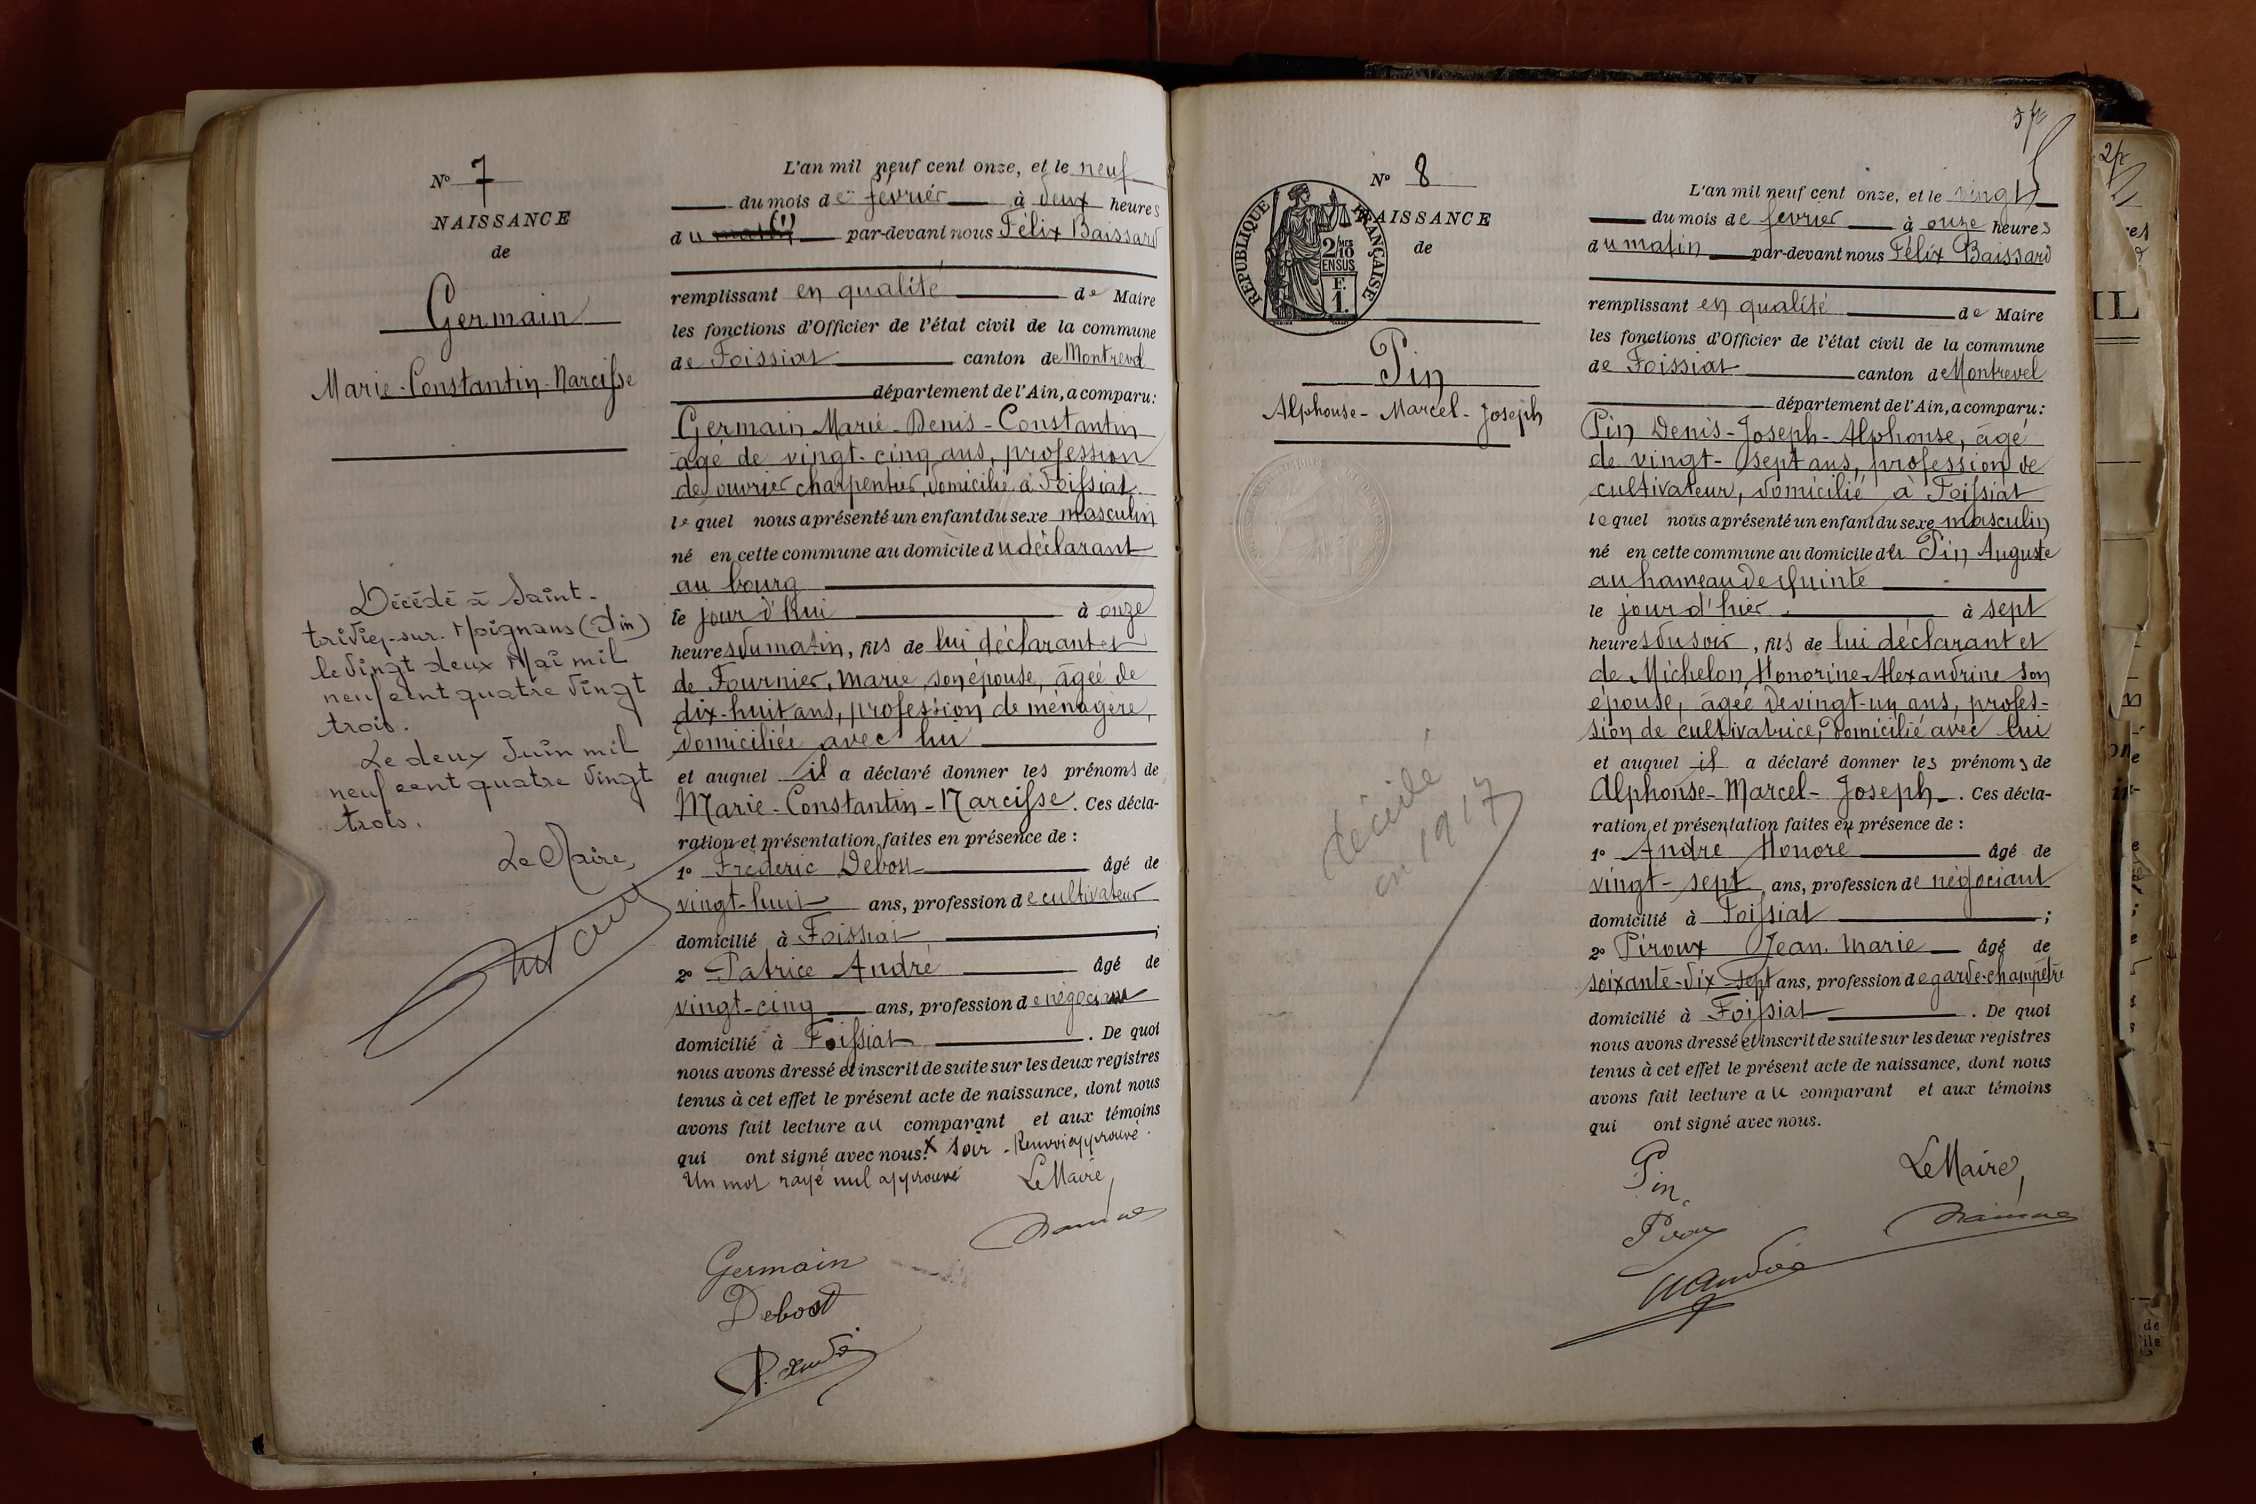 N° 7
NAISSANCE
de
Germain
Marie-Constantin-Narcisse
Décédé à Saint-
trivier-sur-Moignans (Ain)
le vingt deux Mai mil
neuf cent quatre vingt
trois.
Le deux Juin mil
neuf cent quatre vingt
trois.
Le Maire,
L'an mil neuf cent onze, et le neuf
du mois de février à deux heures
du (1) par-devant nous Félix Baissard
remplissant en qualité de Maire
les fonctions d'Officier de l'état civil de la commune
de Foissiat canton de Montrevel
département de l'Ain, a comparu:
Germain Marie-Denis-Constantin
âgé de vingt-cinq ans, profession
de ouvrier charpentier, domicilié à Foissiat
lequel nous a présenté un enfant du sexe masculin
né en cette commune au domicile du déclarant
au bourg
le jour d'hui à onze
heures du matin, fils de lui déclarant et
de Fournier, Marie, son épouse, âgée de
dix-huit ans, profession de ménagère,
domiciliée avec lui
et auquel il a déclaré donner les prénoms de
Marie-Constantin-Narcisse. Ces décla-
ration et présentation faites en présence de :
1° Frédéric Debost âgé de
vingt-huit ans, profession de cultivateur
domicilié à Foissiat ;
2° Patrice André âgé de
vingt-cinq ans, profession de négociant
domicilié à Foissiat . De quoi
nous avons dressé et inscrit de suite sur les deux registres
tenus à cet effet le présent acte de naissance, dont nous
avons fait lecture au comparant et aux témoins
qui ont signé avec nous. x soir - Renvoi approuvé.
Un mot rayé nul approuvé Le Maire,
Germain
Debost
N° 8
NAISSANCE
de
RÉPUBLIQUE FRANÇAISE
2/10
EN SUS
F.
1.
Pin
Alphonse-Marcel-Joseph
décédé
en 1917
L'an mil neuf cent onze, et le vingt
du mois de fevrier à onze heures
du matin par-devant nous Félix Baissard
remplissant en qualité de Maire
les fonctions d'Officier de l'état civil de la commune
de Foissiat canton de Montrevel
département de l'Ain, a comparu:
Pin Denis-Joseph-Alphonse, âgé
de vingt-sept ans, profession de
cultivateur, domicilié à Foissiat
lequel nous a présenté un enfant du sexe masculin
né en cette commune au domicile de Pin Auguste
au hameau de Quinte
le jour d'hier à sept
heures du soir, fils de lui déclarant et
de Michelon Honorine-Alexandrine son
épouse, âgée de vingt-un ans, profes-
sion de cultivatrice, domicilié avec lui
et auquel il a déclaré donner les prénoms de
Alphonse-Marcel-Joseph. Ces décla-
ration et présentation faites en présence de :
1° André Honoré âgé de
vingt-sept ans, profession de négociant
domicilié à Foissiat ;
2° Piroux Jean-Marie âgé de
soixante-dix-sept ans, profession de garde-champêtre
domicilié à Foissiat . De quoi
nous avons dressé et inscrit de suite sur les deux registres
tenus à cet effet le présent acte de naissance, dont nous
avons fait lecture au comparant et aux témoins
qui ont signé avec nous.
Pin
Le Maire,